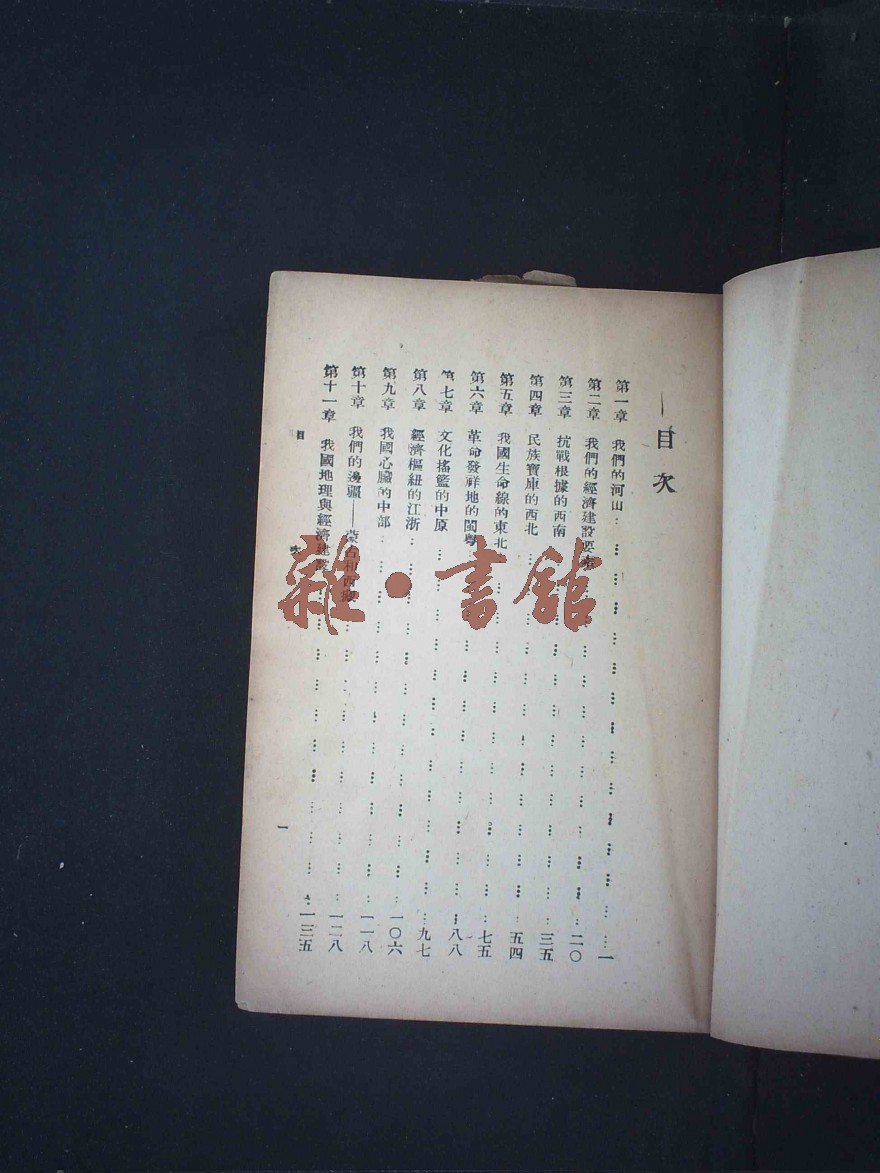 目次
第一章 我們的河山 一
第二章 我們的經濟建設要素 二〇
第三章 抗戰根據的西南 三五
第四章 民族寶庫的西北 五四
第五章 我國生命線的東北 七五
第六章 革命發祥地的閩粵 八八
第七章 文化搖籃的中原 九七
第八章 經濟樞紐的江浙 一〇六
第九章 我國心臟的中部 一一八
第十章 我們的邊疆——蒙古和西藏 一二八
第十一章 我國地理與經濟建設 一三五
目次 一
雜·書館